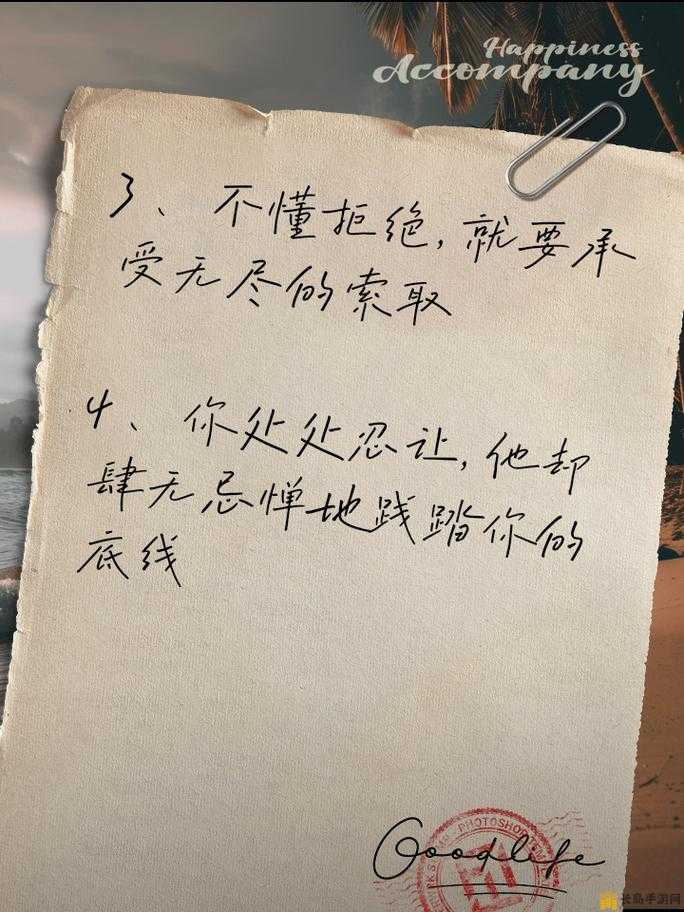 Happiness
Accompany
3、不懂拒绝,就要承
受无尽的索取
4、你处处忍让,他却
肆无忌惮地践踏你的
底线
PHOTOSHOP
Goodlife
长岛手游网